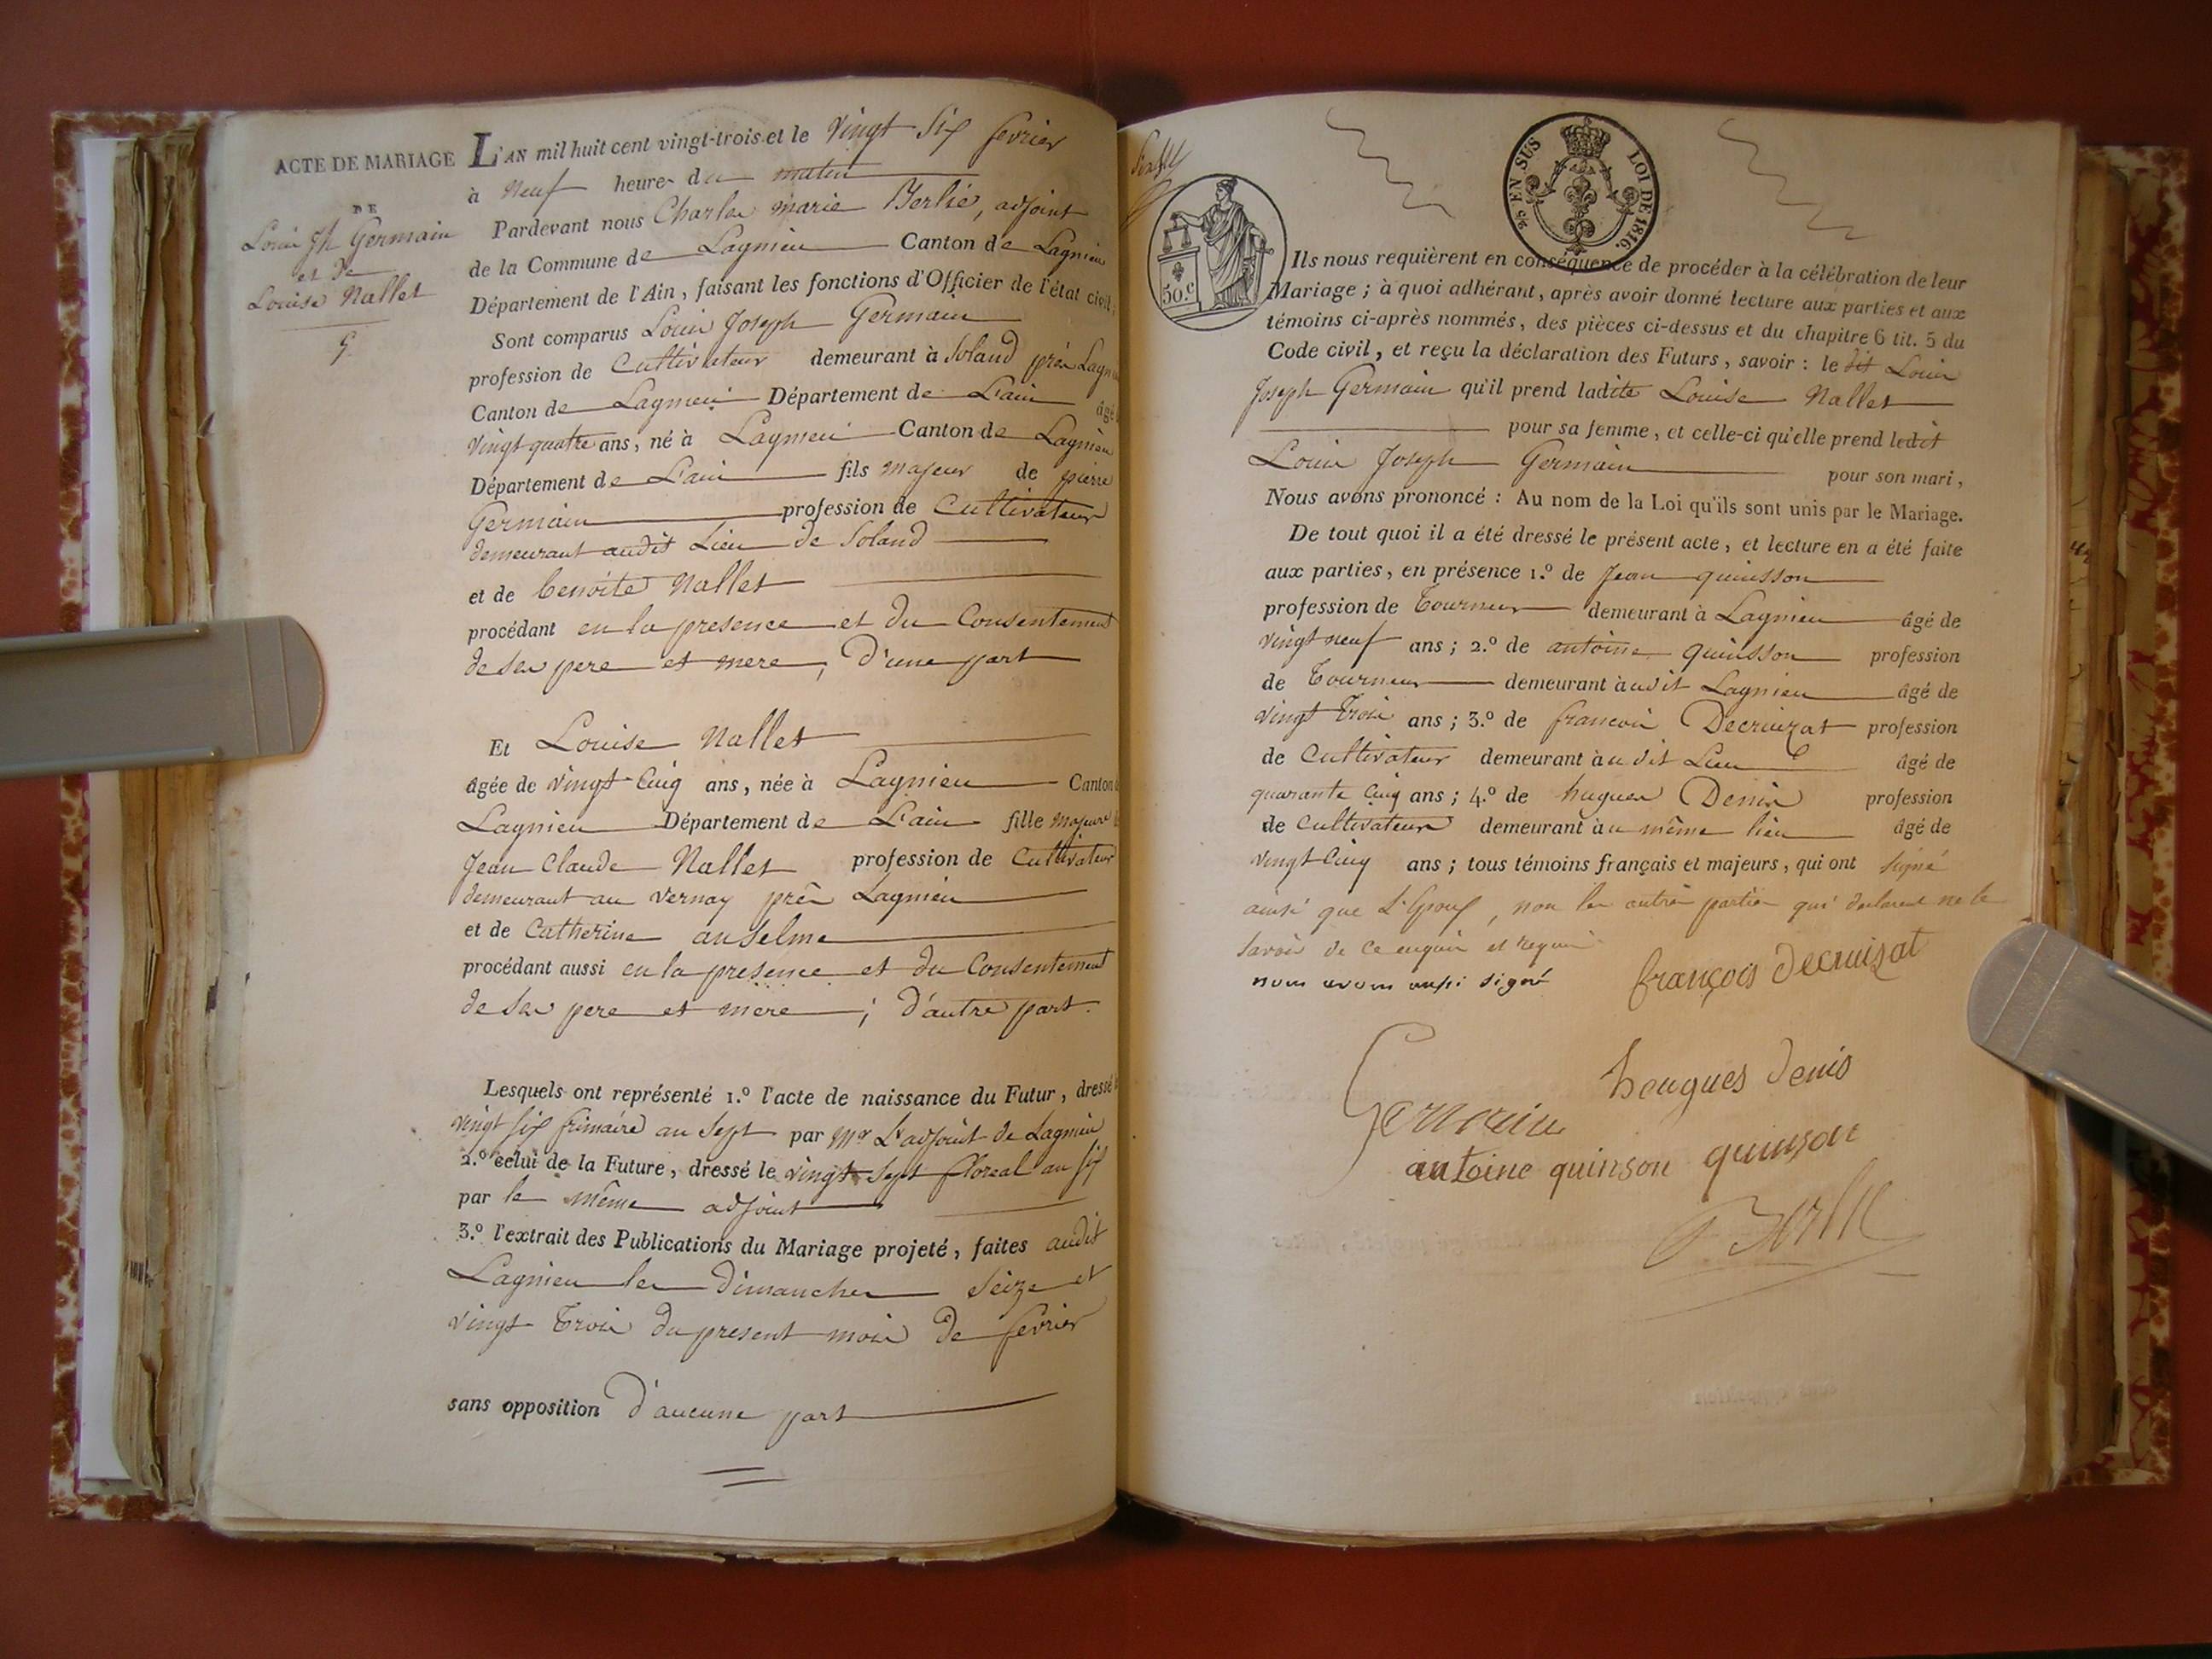 ACTE DE MARIAGE
DE
Louis Jh Germain
et de
Louise Nallet
L'AN mil huit cent vingt-trois et le Vingt Six fevrier
à Neuf heures du matin
Pardevant nous Charles marie Berlié, adjoint
de la Commune de Lagnieu Canton de Lagnieu
Département de l'Ain, faisant les fonctions d'Officier de l'état civil,
Sont comparus Louis Joseph Germain
profession de Cultivateur demeurant à Soland près Lagnieu
Canton de Lagnieu Département de L'ain âgé
vingt quatre ans, né à Lagnieu Canton de Lagnieu
Département de L'ain fils majeur de pierre
Germain profession de Cultivateur
demeurant audit Lieu de Soland
et de benoite Nallet
procédant en la presence et du Consentement
de ses pere et mere, D'une part
Et Louise Nallet
âgée de vingt Cinq ans, née à Lagnieu Canton
Lagnieu Département de L'ain fille majeure
Jean Claude Nallet profession de Cultivateur
demeurant au vernay près Lagnieu
et de Catherine anselme
procédant aussi en la presence et du Consentement
de ses pere et mere ; d'autre part.
Lesquels ont représenté 1.º l'acte de naissance du Futur, dressé
vingt six frimaire an Sept par Mr L'adjoint de Lagnieu
2.º celui de la Future, dressé le vingt Sept floreal an six
par le même adjoint
3.º l'extrait des Publications du Mariage projeté, faites audit
Lagnieu les Dimanches Seize et
vingt Trois du present mois De fevrier
sans opposition D'aucune part
2/5 EN SUS LOI DE 1816.
50.c
Ils nous requièrent en conséquence de procéder à la célébration de leur
Mariage ; à quoi adhérant, après avoir donné lecture aux parties et aux
témoins ci-après nommés, des pièces ci-dessus et du chapitre 6 tit. 5 du
Code civil, et reçu la déclaration des Futurs, savoir : le dit Louis
Joseph Germain qu'il prend ladite Louise Nallet
pour sa femme, et celle-ci qu'elle prend ledit
Louis Joseph Germain pour son mari,
Nous avons prononcé : Au nom de la Loi qu'ils sont unis par le Mariage.
De tout quoi il a été dressé le présent acte, et lecture en a été faite
aux parties, en présence 1.º de Jean quinsson
profession de Tourneur demeurant à Lagnieu âgé de
vingt neuf ans ; 2.º de antoine quinsson profession
de Tourneur demeurant à udit Lagnieu âgé de
vingt Trois ans ; 3.º de francois Decruizat profession
de Cultivateur demeurant à udit Lieu âgé de
quarante Cinq ans ; 4.º de hugues Denis profession
de Cultivateur demeurant à u même lieu âgé de
vingt Cinq ans ; tous témoins français et majeurs, qui ont signé
ainsi que L'Epoux, non les autres parties qui declarent ne le
savoir de ce enquis et requis
nous avons aussi signé
françois decruizat
hougues denis
Germain
antoine quinson quinson
Berlié